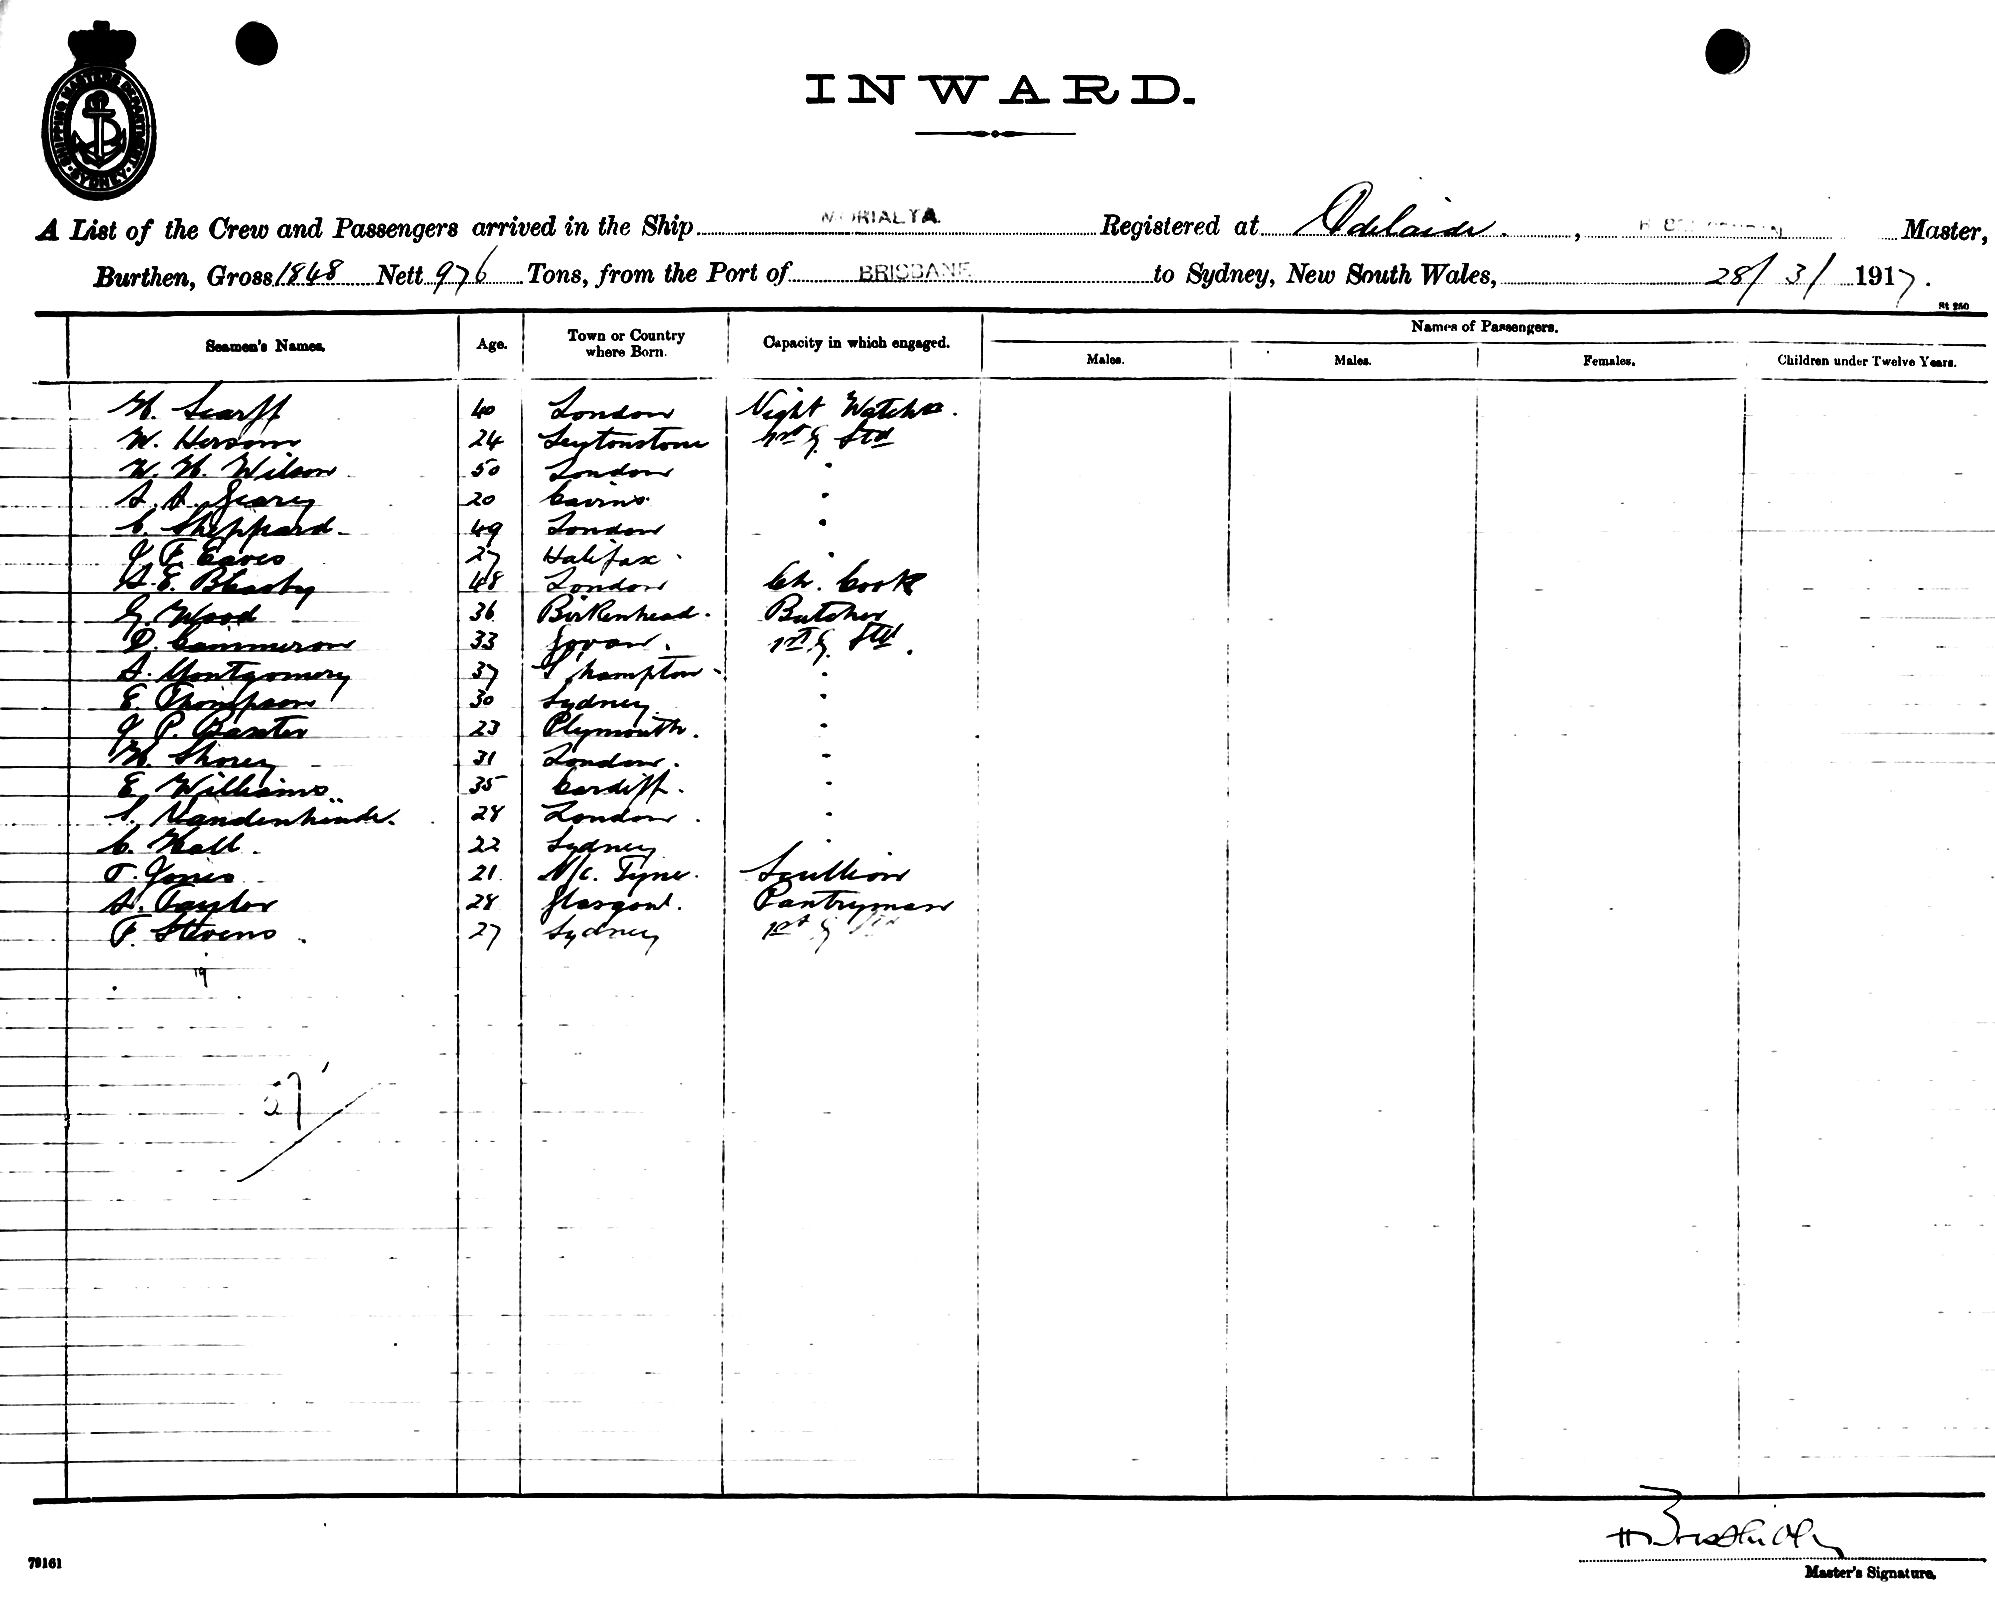 SHIPPING MASTERS DEPARTMENT SYDNEY
INWARD.
A List of the Crew and Passengers arrived in the Ship MORIALTA. Registered at Adelaide, Master,
Burthen, Gross 1848 Nett 976 Tons, from the Port of BRISBANE to Sydney, New South Wales, 28/3/1917.
St 250
Seamen's Names. Age. Town or Country where Born. Capacity in which engaged. Names of Passengers.
Males. Males. Females. Children under Twelve Years.
H. Scarff 40 London Night Watch
W. Hersom 24 Leytonstone Std
W. H. Wilson 50 London "
A. A. Geary 20 Cairns "
C. Sheppard 49 London "
J F Eaves 27 Halifax "
A. E. 48 London Ch. Cook
G. Wood 36 Birkenhead. Butcher
D. Cammeron 33 Govan. 1st G. Std.
A. Montgomery 37 S'hampton "
E. Thompson 30 Sydney "
J P. Baxter 23 Plymouth. "
H. Shorey 31 London. "
E. Williams 35 Cardiff. "
28 London. "
C. Hall. 22 Sydney "
T. Jones 21 N/c. Tyne. Scullion
A. Taylor 28 Glasgow. Pantryman
F. Stevens. 27 Sydney 1st G Std
19
57
79161
Master's Signature.